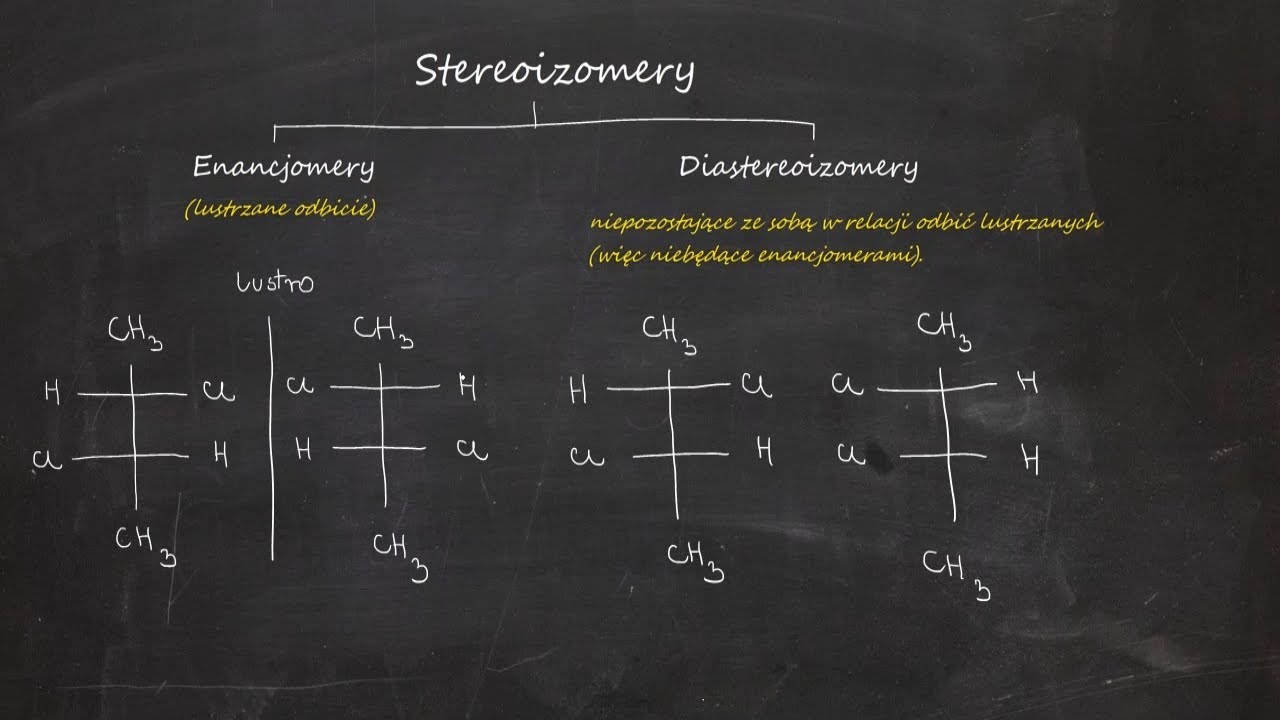 Stereoizomery
Enancjomery
(lustrzane odbicie)
Diastereoizomery
niepozostające ze sobą w relacji odbić lustrzanych
(więc niebędące enancjomerami).
lustro
CH3 CH3 CH3 CH3
H Cl Cl H H Cl Cl H
Cl H H Cl Cl H Cl H
CH3 CH3 CH3 CH3